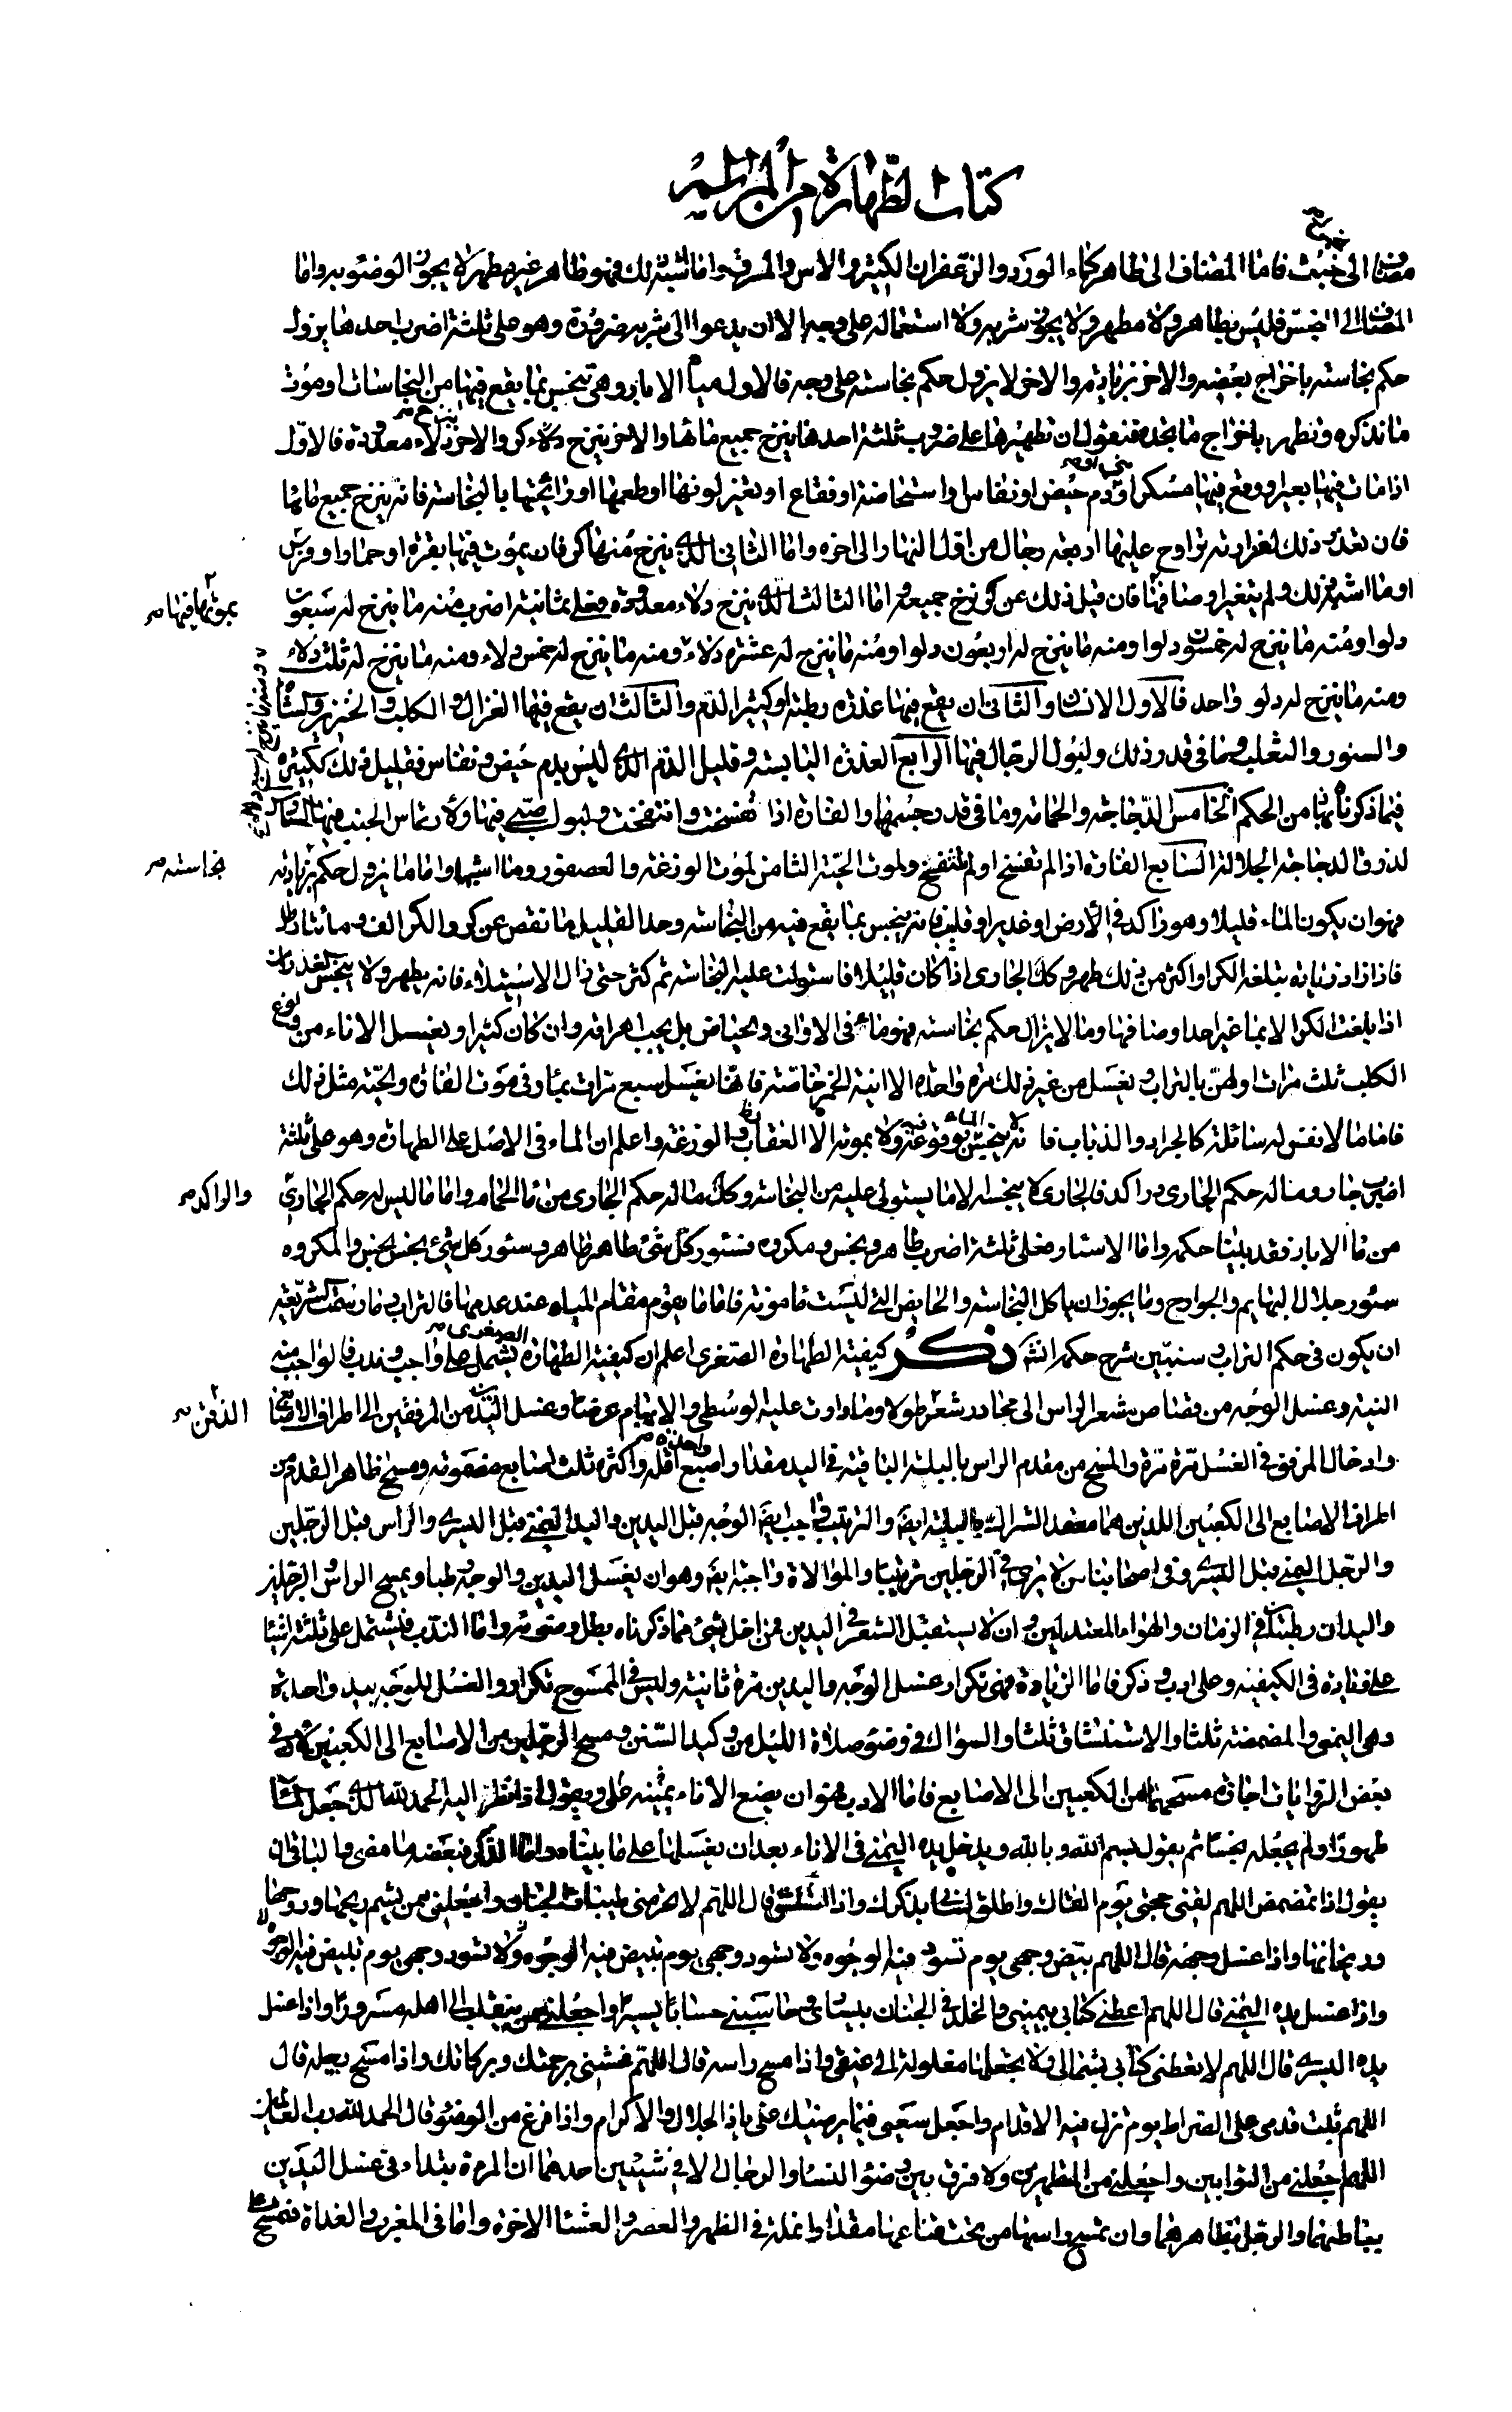 كتاب الطهارة من المراسم
مضاف الى نجس فاما المضاف الى طاهر كماء الورد والزعفران الكثير والاس والمرق وما اشبه ذلك فهو طاهر غير مطهر لا يجوز الوضوء به واما
المضاف الى النجس فليس بطاهر ولا مطهر ولا يجوز شربه ولا استعماله على وجه الا ان يدعوا الى شربه ضرورة وهو على ثلثة اضرب احدها يزول
حكم نجاسته باخراج بعضه والاخر بزيادته والاخر لا يزول حكم نجاسته على وجه فالاول مياه الابار وهى تنجس بما يقع فيها من النجاسات او موت
ما نذكره وتطهر باخراج ما نحده فنقول ان تطهيرها على ضروب ثلثة احدها ينزح جميع مائها والاخر ينزح كر والاخر دلاء معدودة فالاول
اذا مات فيها بعير او وقع فيها مسكر او دم حيض او نفاس او استحاضة او فقاع او تغير لونها او طعمها او رائحتها بالنجاسة فانه ينزح جميع مائها
فان تعذر ذلك لغزارته تراوح عليها اربعة رجال من اول النهار الى اخره واما الثانى الذى ينزح منها كر فان يموت فيها بقرة او حمار او فرس
او ما اشبه ذلك ولم يتغير اوصافها فان قبل ذلك عن كر نزح جميعه واما الثالث الذى ينزح دلاء معدودة فعلى ثمانية اضرب منه ما ينزح له سبعون
بموتها فيها
دلوا ومنه ما ينزح له خمسون دلوا ومنه ما ينزح له اربعون دلوا ومنه ما ينزح له عشرة دلاء ومنه ما ينزح له خمس دلاء ومنه ما ينزح له ثلث دلاء
ومنه ما ينزح له دلو واحد فالاول الانسان والثانى ان يقع فيها عذرة رطبة او كثير الدم والثالث ان يقع فيها الغزال والكلب والخنزير والشاة
والسنور والثعلب وما فى قدر ذلك ولبول الرجال فيها الرابع العذرة اليابسة وقليل الدم الذى ليس بدم حيض ونفاس فقليل ذلك ككثيره
فيما ذكرناه من الحكم الخامس الدجاجة والحمامة وما فى قدر جسمها والفارة اذا تفسخت وانتفخت ولبول صبى فيها ولارتماس الجنب فيها السادس
لذرق الدجاجة الجلالة السابع الفارة اذا لم تفسخ او لم تنتفخ ولموت الحية الثامن لموت الوزغة والعصفور وما اشبهها واما ما يزول حكم بزيادته
نجاسته
فهو ان يكون الماء قليلا وهو راكد فى الارض او غدير او قليب فانه ينجس بما يقع فيه من النجاسة وحد القليل ما نقص عن كر والكر الف ومائتا رطل
فاذا زاد زيادة تبلغه الكر او اكثر من ذلك طهر وكك الجارى اذا كان قليلا فاستولت عليه النجاسة ثم كثر حتى زال الاستيلاء فانه يطهر ولا ينجس الغدران
اذا بلغت الكر الا بما غير احد اوصافها وما لا يزال حكم نجاسته فهو ماء فى الاوانى والحياض بل يجب اهراقه وان كان كثيرا ويغسل الاناء من ولوغ
الكلب ثلث مرات اولهن بالتراب ويغسل من غير ذلك مرة واحدة الا انية الخمر خاصة فانها يغسل سبع مرات بماء وفى موت الفارة والحية مثل ذلك
فاما ما لا نفس له سائلة كالجراد والذباب فانه لا ينجس بوقوعه فيه الماء ولا بموته الا العقارب والوزغة واعلم ان الماء فى الاصل على الطهارة وهو على ثلثة
اضرب جار وما له حكم الجارى وراكد فالجارى لا ينجسه الا ما يستولى عليه من النجاسة وكك ما له حكم الجارى من ماء الحمام واما ما ليس له حكم الجارى
والراكد
من ماء الابار فقد بينا حكمه واما الاسئار فعلى ثلثة اضرب طاهر ونجس ومكروه فسئور كل شئ طاهر طاهر وسئور كل شئ نجس نجس والمكروه
سئور جلال البهايم والجوارح وما يجوز ان ياكل النجاسة والحايض التى ليست مامونة فاما ما يقوم مقام المياه عند عدمها فالتراب وما
ان يكون فى حكم التراب وسنبين شرح حكمه انشاء ذكر كيفية الطهارة الصغرى اعلم ان كيفية الطهارة الصغرى يشتمل على واجب وندب فالواجب منه
النية وغسل الوجه من قصاص شعر الراس الى محادر شعر طولا وما دارت عليه الوسطى والابهام عرضا وغسل اليدين من المرفقين الى اطراف الاصابع
الذقن
وادخال المرفق فى الغسل مرة مرة والمسح من مقدم الراس بالبلة الباقية فى اليد مقدار اصبع واحدة اقله واكثره ثلث اصابع مضمومة ومسح ظاهر القدم من
اطراف الاصابع الى الكعبين اللذين هما معقد الشراك بالبلة ايضا والترتيب واجب ايضا الوجه قبل اليدين واليد اليمنى قبل اليسرى والراس قبل الرجلين
والرجل اليمنى قبل اليسرى وفى اصحابنا من لا يرى فى الرجلين ترتيبا والموالاة واجبة ايضا وهو ان يغسل اليدين والوجه رطبا ويمسح الراس والرجلين
واليدان رطبتان فى الزمان والهواء المعتدلين وان لا يستقبل الشعر فى اليدين فمن اخل بشئ مما ذكرناه بطل وضوئه واما الندب فيشتمل على ثلثة اشياء
على زيادة فى الكيفية وعلى ادب وذكر فاما الزيادة فهى تكرار غسل الوجه واليدين مرة ثانية وليس فى الممسوح تكرار والغسل للوجه بيد واحدة
وهى اليمنى والمضمضة ثلثا والاستنشاق ثلثا والسواك فى وضوء صلاة الليل من وكيد السنن ومسح الرجلين من الاصابع الى الكعبين لان فى
بعض الروايات اجازة مسحهما من الكعبين الى الاصابع فاما الادب فهو ان يضع الاناء يمينه على ويقول اذا نظر اليه الحمد لله الذى جعل الماء
طهورا ولم يجعله نجسا ثم يقول بسم الله وبالله ويدخل يده اليمنى فى الاناء بعد ان يغسلها على ما بيناه واما الذكر فبعضه ما مضى والباقى ان
يقول اذا تمضمض اللهم لقنى حجتى يوم القاك واطلق لسانى بذكرك واذا استنشق قال اللهم لا تحرمنى طيبات الجنان واجعلنى ممن يشم ريحها وروحها
وريحانها واذا غسل وجهه قال اللهم بيض وجهى يوم تسود فيه الوجوه ولا تسود وجهى يوم تبيض فيه الوجوه
واذا غسل يده اليمنى قال اللهم اعطنى كتابى بيمينى والخلد فى الجنان بيسارى وحاسبنى حسابا يسيرا واجعلنى ممن ينقلب الى اهله مسرورا واذا غسل
يده اليسرى قال اللهم لا تعطنى كتابى بشمالى ولا تجعلها مغلولة الى عنقى واذا مسح راسه قال اللهم غشنى برحمتك وبركاتك واذا مسح رجله قال
اللهم ثبت قدمى على الصراط يوم تزل فيه الاقدام واجعل سعيى فيما يرضيك عنى ياذا الجلال والاكرام واذا فرغ من الوضوء قال الحمد لله رب العالمين
اللهم اجعلنى من التوابين واجعلنى من المتطهرين ولا فرق بين وضوء النساء والرجال الا فى شيئين احدهما ان المرءة يبتداء فى غسل اليدين
بباطنهما والرجل بظاهرهما وان تمسح راسها من تحت قناعها مقدار انملة فى الظهر والعصر والعشاء الاخرة واما فى المغرب والغداة فتمسح